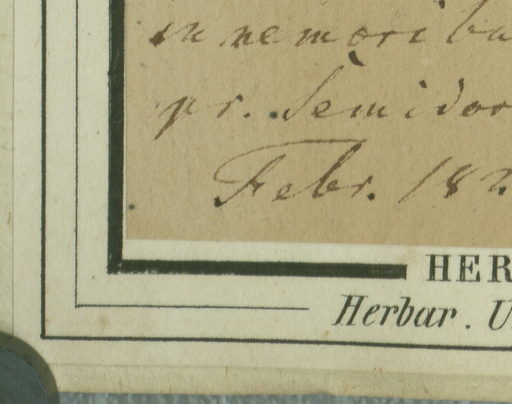 in nemoribu
pr. Semidor
Febr. 182
HER
Herbar. U